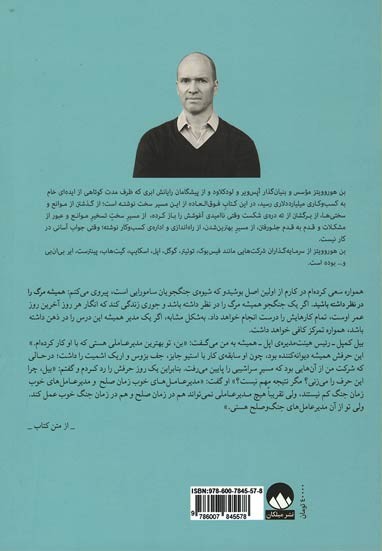 بن هوروویتز مؤسس و بنیان‌گذار آپس‌ویر و لودکلاود و از پیشگامان رایانش ابری که ظرف مدت کوتاهی از ایده‌ای خام
به کسب‌وکاری میلیارددلاری رسید، در این کتاب فوق‌العاده از این مسیر سخت نوشته است؛ از گذشتن از موانع و
سختی‌ها، از برگشتن از ته دره‌ی شکست وقتی ناامیدی آغوشش را باز کرده، از مسیر سختِ تسخیر موانع و عبور از
مشکلات و قدم به قدم جلورفتن، از مسیر بهترین‌شدن، از راه‌اندازی و اداره‌ی کسب‌وکار نوشته؛ وقتی جواب آسانی در
کار نیست.
بن هوروویتز از سرمایه‌گذاران شرکت‌هایی مانند فیس‌بوک، توئیتر، گوگل، اپل، اسکایپ، گیت‌هاب، پینترست، ایر بی‌ان‌بی
و... بوده است.
همواره سعی کرده‌ام در کارم از اولین اصل بوشیدو که شیوه‌ی جنگجویان سامورایی است، پیروی می‌کنم؛ همیشه مرگ را
در نظر داشته باشید. اگر یک جنگجو همیشه مرگ را در نظر داشته باشد و جوری زندگی کند که انگار هر روز آخرین روز
عمر اوست، تمام کارهایش را درست انجام خواهد داد. به‌شکل مشابه، اگر یک مدیر همیشه این درس را در ذهن داشته
باشد، همواره تمرکز کافی خواهد داشت.
بیل کمپل ـ رئیس هیئت‌مدیره‌ی اپل ـ همیشه به من می‌گفت: «بن، تو بهترین مدیرعاملی هستی که با او کار کرده‌ام.»
این حرفش همیشه دیوانه‌کننده بود، چون او سابقه‌ی کار با استیو جابز، جف بزوس و اریک اشمیت را داشت؛ درحالی که
شرکت من از آن‌هایی بود که مسیر سراشیبی را پایین می‌رفت. بنابراین یک روز حرفش را رد کردم و گفتم: «بیل، چرا
این حرف را می‌زنی؟ مگر نتیجه مهم نیست؟» او گفت: «مدیرعامل‌های خوب زمان صلح و مدیرعامل‌های خوب
زمان جنگ کم نیستند، ولی تقریباً هیچ مدیرعاملی نمی‌تواند هم در زمان صلح و هم در زمان جنگ خوب عمل کند.
ولی تو از آن مدیرعامل‌های جنگ‌وصلح هستی.»
_ از متن کتاب _
ISBN: 978-600-7845-57-8
9 786007 845578
۴۰۰۰۰ تومان
نشر میلکان